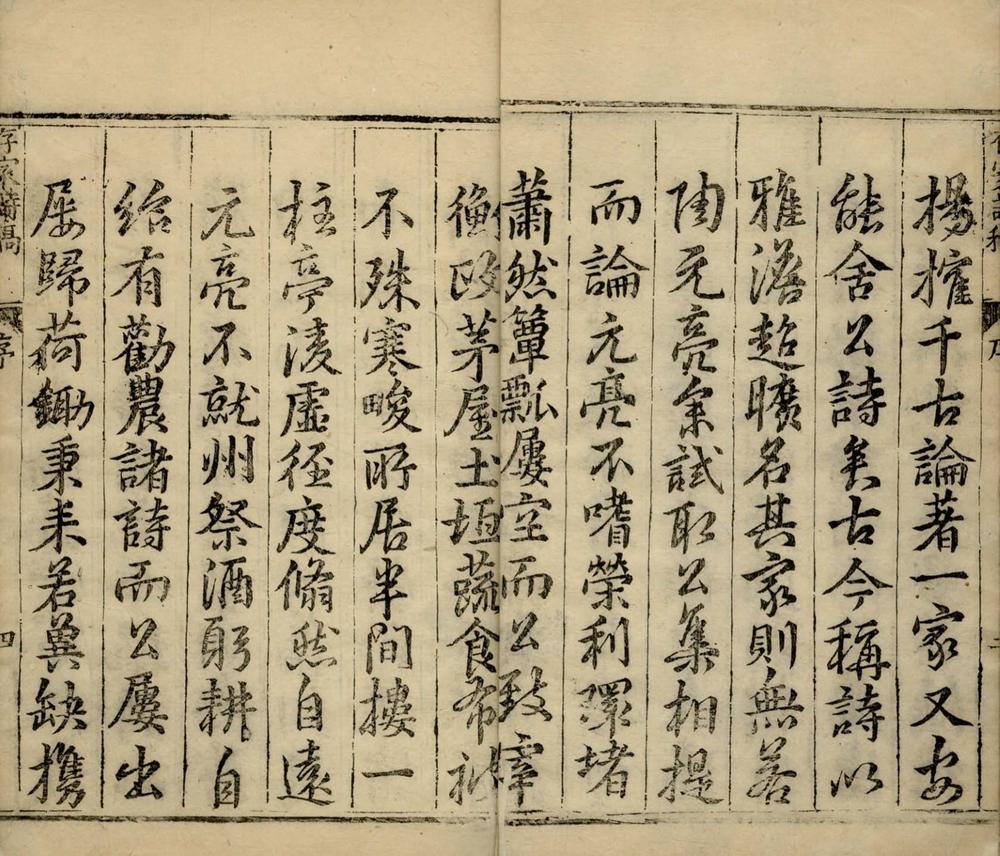 揚搉千古論著一家又安
能舍公詩矣古今稱詩以
雅澹超曠名其家則無若
陶元亮余試取公集相提
而論元亮不嗜榮利環堵
蕭然簞瓢屢空而公致宰
衡敀茅屋土垣蔬食布衫
不殊寒畯所居半間摟一
柱亭淩虛徑度翛然自遠
元亮不就州祭酒躬耕自
給有勸農諸詩而公屢出
屢歸荷鋤秉耒若冀缺攜
存家詩稿
序
四